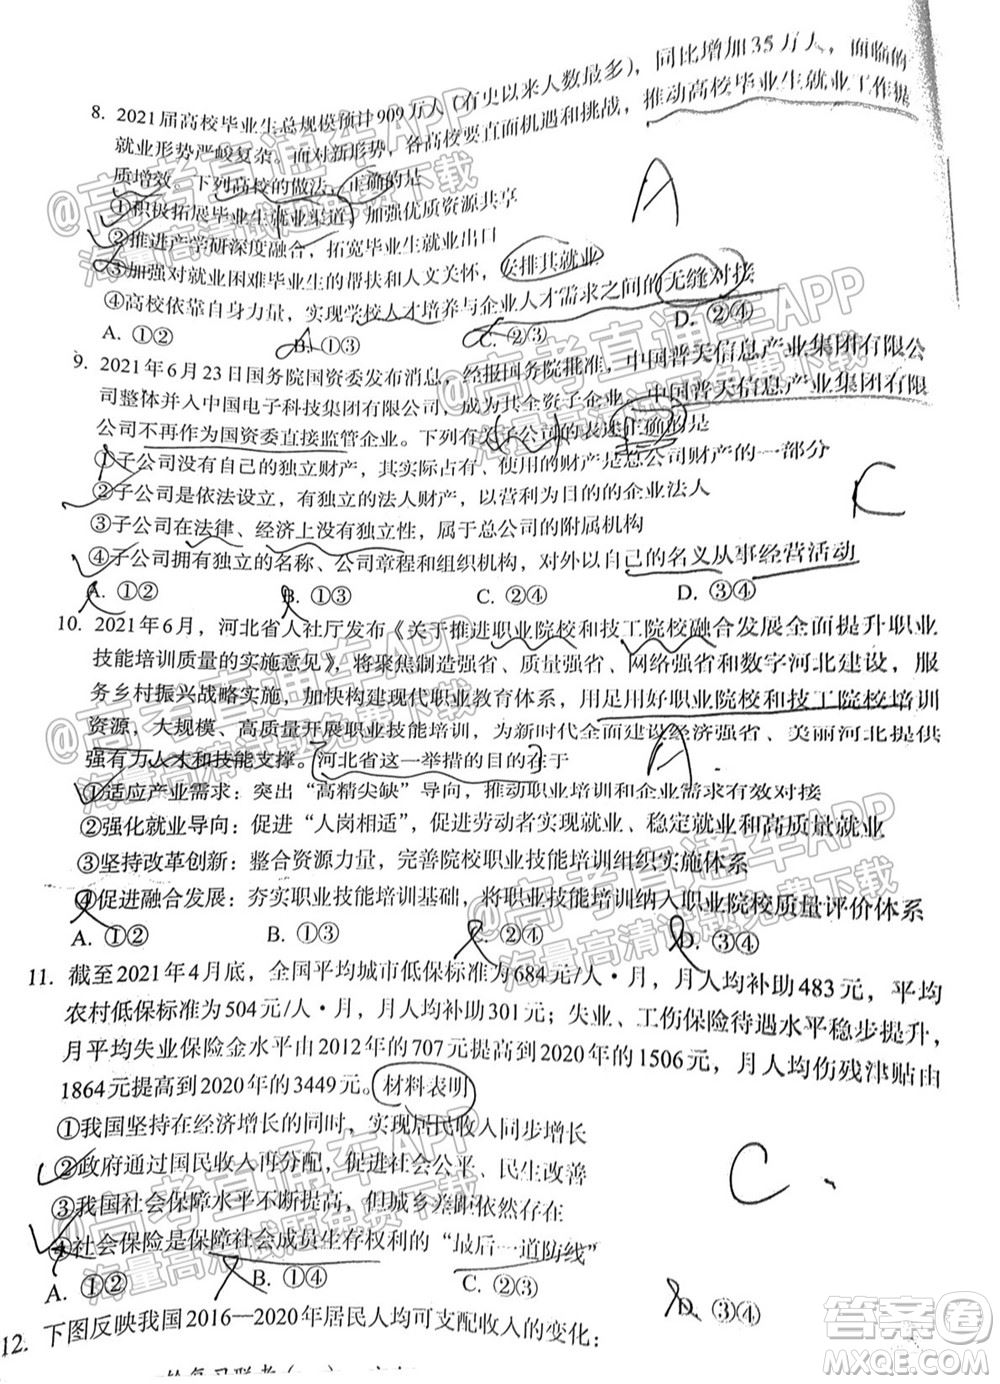 8. 2021届高校毕业生总规模预计909万人（有史以来人数最多），同比增加35万人，面临的
就业形势严峻复杂。面对新形势，各高校要直面机遇和挑战，推动高校毕业生就业工作提
质增效。下列高校的做法，正确的是
①积极拓展毕业生就业渠道，加强优质资源共享
②推进产学研深度融合，拓宽毕业生就业出口
③加强对就业困难毕业生的帮扶和人文关怀，安排其就业
④高校依靠自身力量，实现学校人才培养与企业人才需求之间的无缝对接
A. ①② B. ①③ C. ②③ D. ②④
A
9. 2021年6月23日国务院国资委发布消息，经报国务院批准，中国普天信息产业集团有限公
司整体并入中国电子科技集团有限公司，成为其全资子企业，中国普天信息产业集团有限
公司不再作为国资委直接监管企业。下列有关子公司的表述正确的是
①子公司没有自己的独立财产，其实际占有、使用的财产是总公司财产的一部分
②子公司是依法设立，有独立的法人财产，以营利为目的的企业法人
③子公司在法律、经济上没有独立性，属于总公司的附属机构
④子公司拥有独立的名称、公司章程和组织机构，对外以自己的名义从事经营活动
A. ①② B. ①③ C. ②④ D. ③④
C
10. 2021年6月，河北省人社厅发布《关于推进职业院校和技工院校融合发展全面提升职业
技能培训质量的实施意见》，将聚焦制造强省、质量强省、网络强省和数字河北建设，服
务乡村振兴战略实施，加快构建现代职业教育体系，用足用好职业院校和技工院校培训
资源，大规模、高质量开展职业技能培训，为新时代全面建设经济强省、美丽河北提供
强有力人才和技能支撑。河北省这一举措的目的在于
①适应产业需求：突出“高精尖缺”导向，推动职业技能培训供给、需求有效对接
②强化就业导向：促进“人岗相适”，促进劳动者实现就业、稳定就业和高质量就业
③坚持改革创新：整合资源力量，完善院校职业技能培训组织实施体系
④促进融合发展：夯实职业技能培训基础，将职业技能培训纳入职业院校质量评价体系
A. ①② B. ①③ C. ②④ D. ③④
A
11. 截至2021年4月底，全国平均城市低保标准为684元/人·月，月人均补助483元，平均
农村低保标准为504元/人·月，月人均补助301元；失业、工伤保险待遇水平稳步提升，
月平均失业保险金水平由2012年的707元提高到2020年的1506元，月人均伤残津贴由
1864元提高到2020年的3449元。材料表明
①我国坚持在经济增长的同时，实现居民收入同步增长
②政府通过国民收入再分配，促进社会公平、民生改善
③我国社会保障水平不断提高，但城乡差距依然存在
④社会保险是保障社会成员生存权利的“最后一道防线”
A. ①② B. ①④ C. ②③ D. ③④
C
12. 下图反映我国2016—2020年居民人均可支配收入的变化：
@高考直通车APP
海量高清试题免费下载
@高考直通车APP
海量高清试题免费下载
@高考直通车APP
海量高清试题免费下载
@高考直通车APP
海量高清试题免费下载
@高考直通车APP
海量高清试题免费下载
答案圈
MXQE.COM